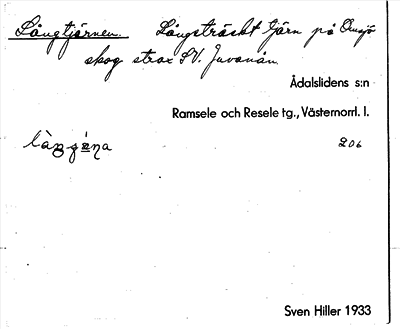 Långtjärnen. Långsträckt tjärn på Omsjö
skog strax SV. Juvanån.
Ådalslidens s:n
Ramsele och Resele tg., Västernorrl. l.
206
Sven Hiller 1933